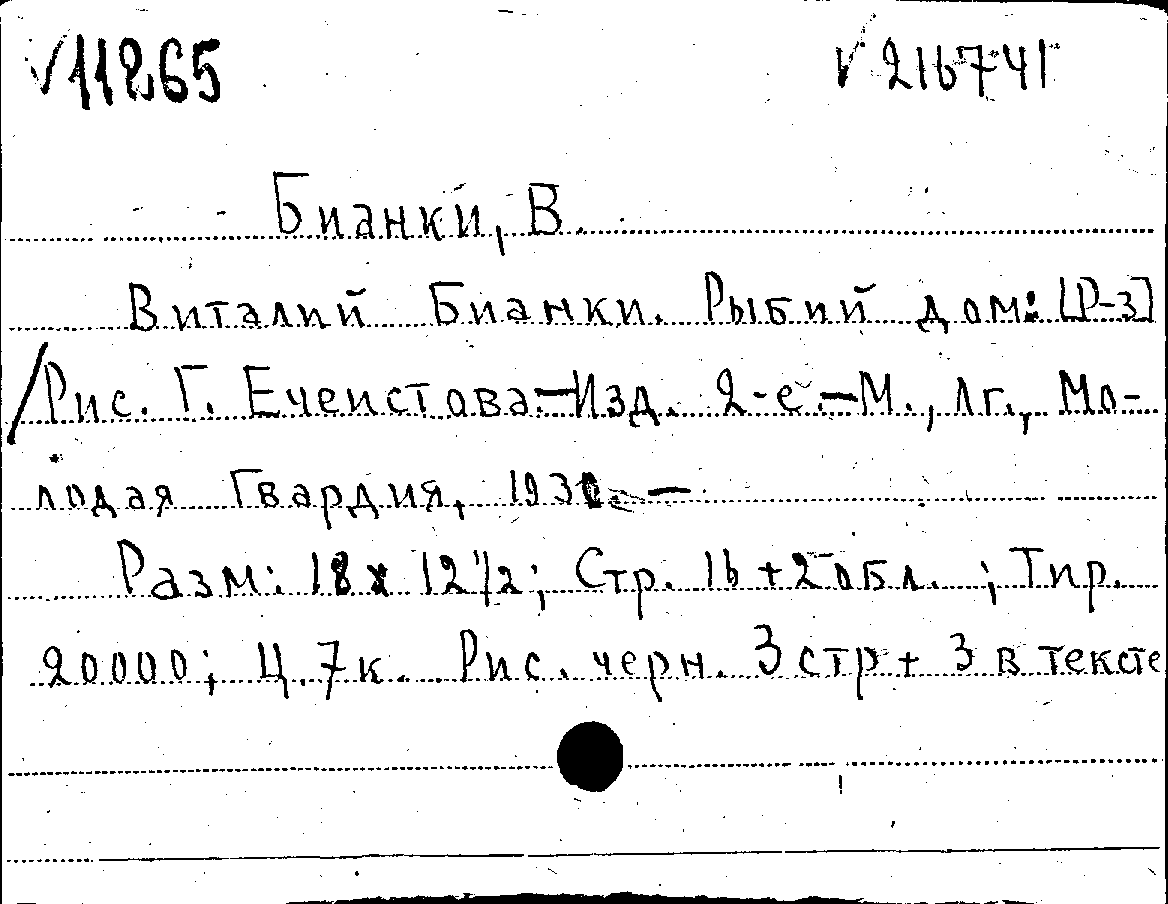 √11865 √216741
Бианки, В.
Виталий Бианки. Рыбий дом: [Р-з]
/Рис. Г. Ечеистова.—Изд. 2-е.—М., Лг., Мо-
лодая Гвардия, 1930. —
Разм: 18 x 12 1/2; Стр. 16 + 2 обл. ; Тир.
20000; Ц. 7 к. Рис. черн. 3 стр + 3 в тексте